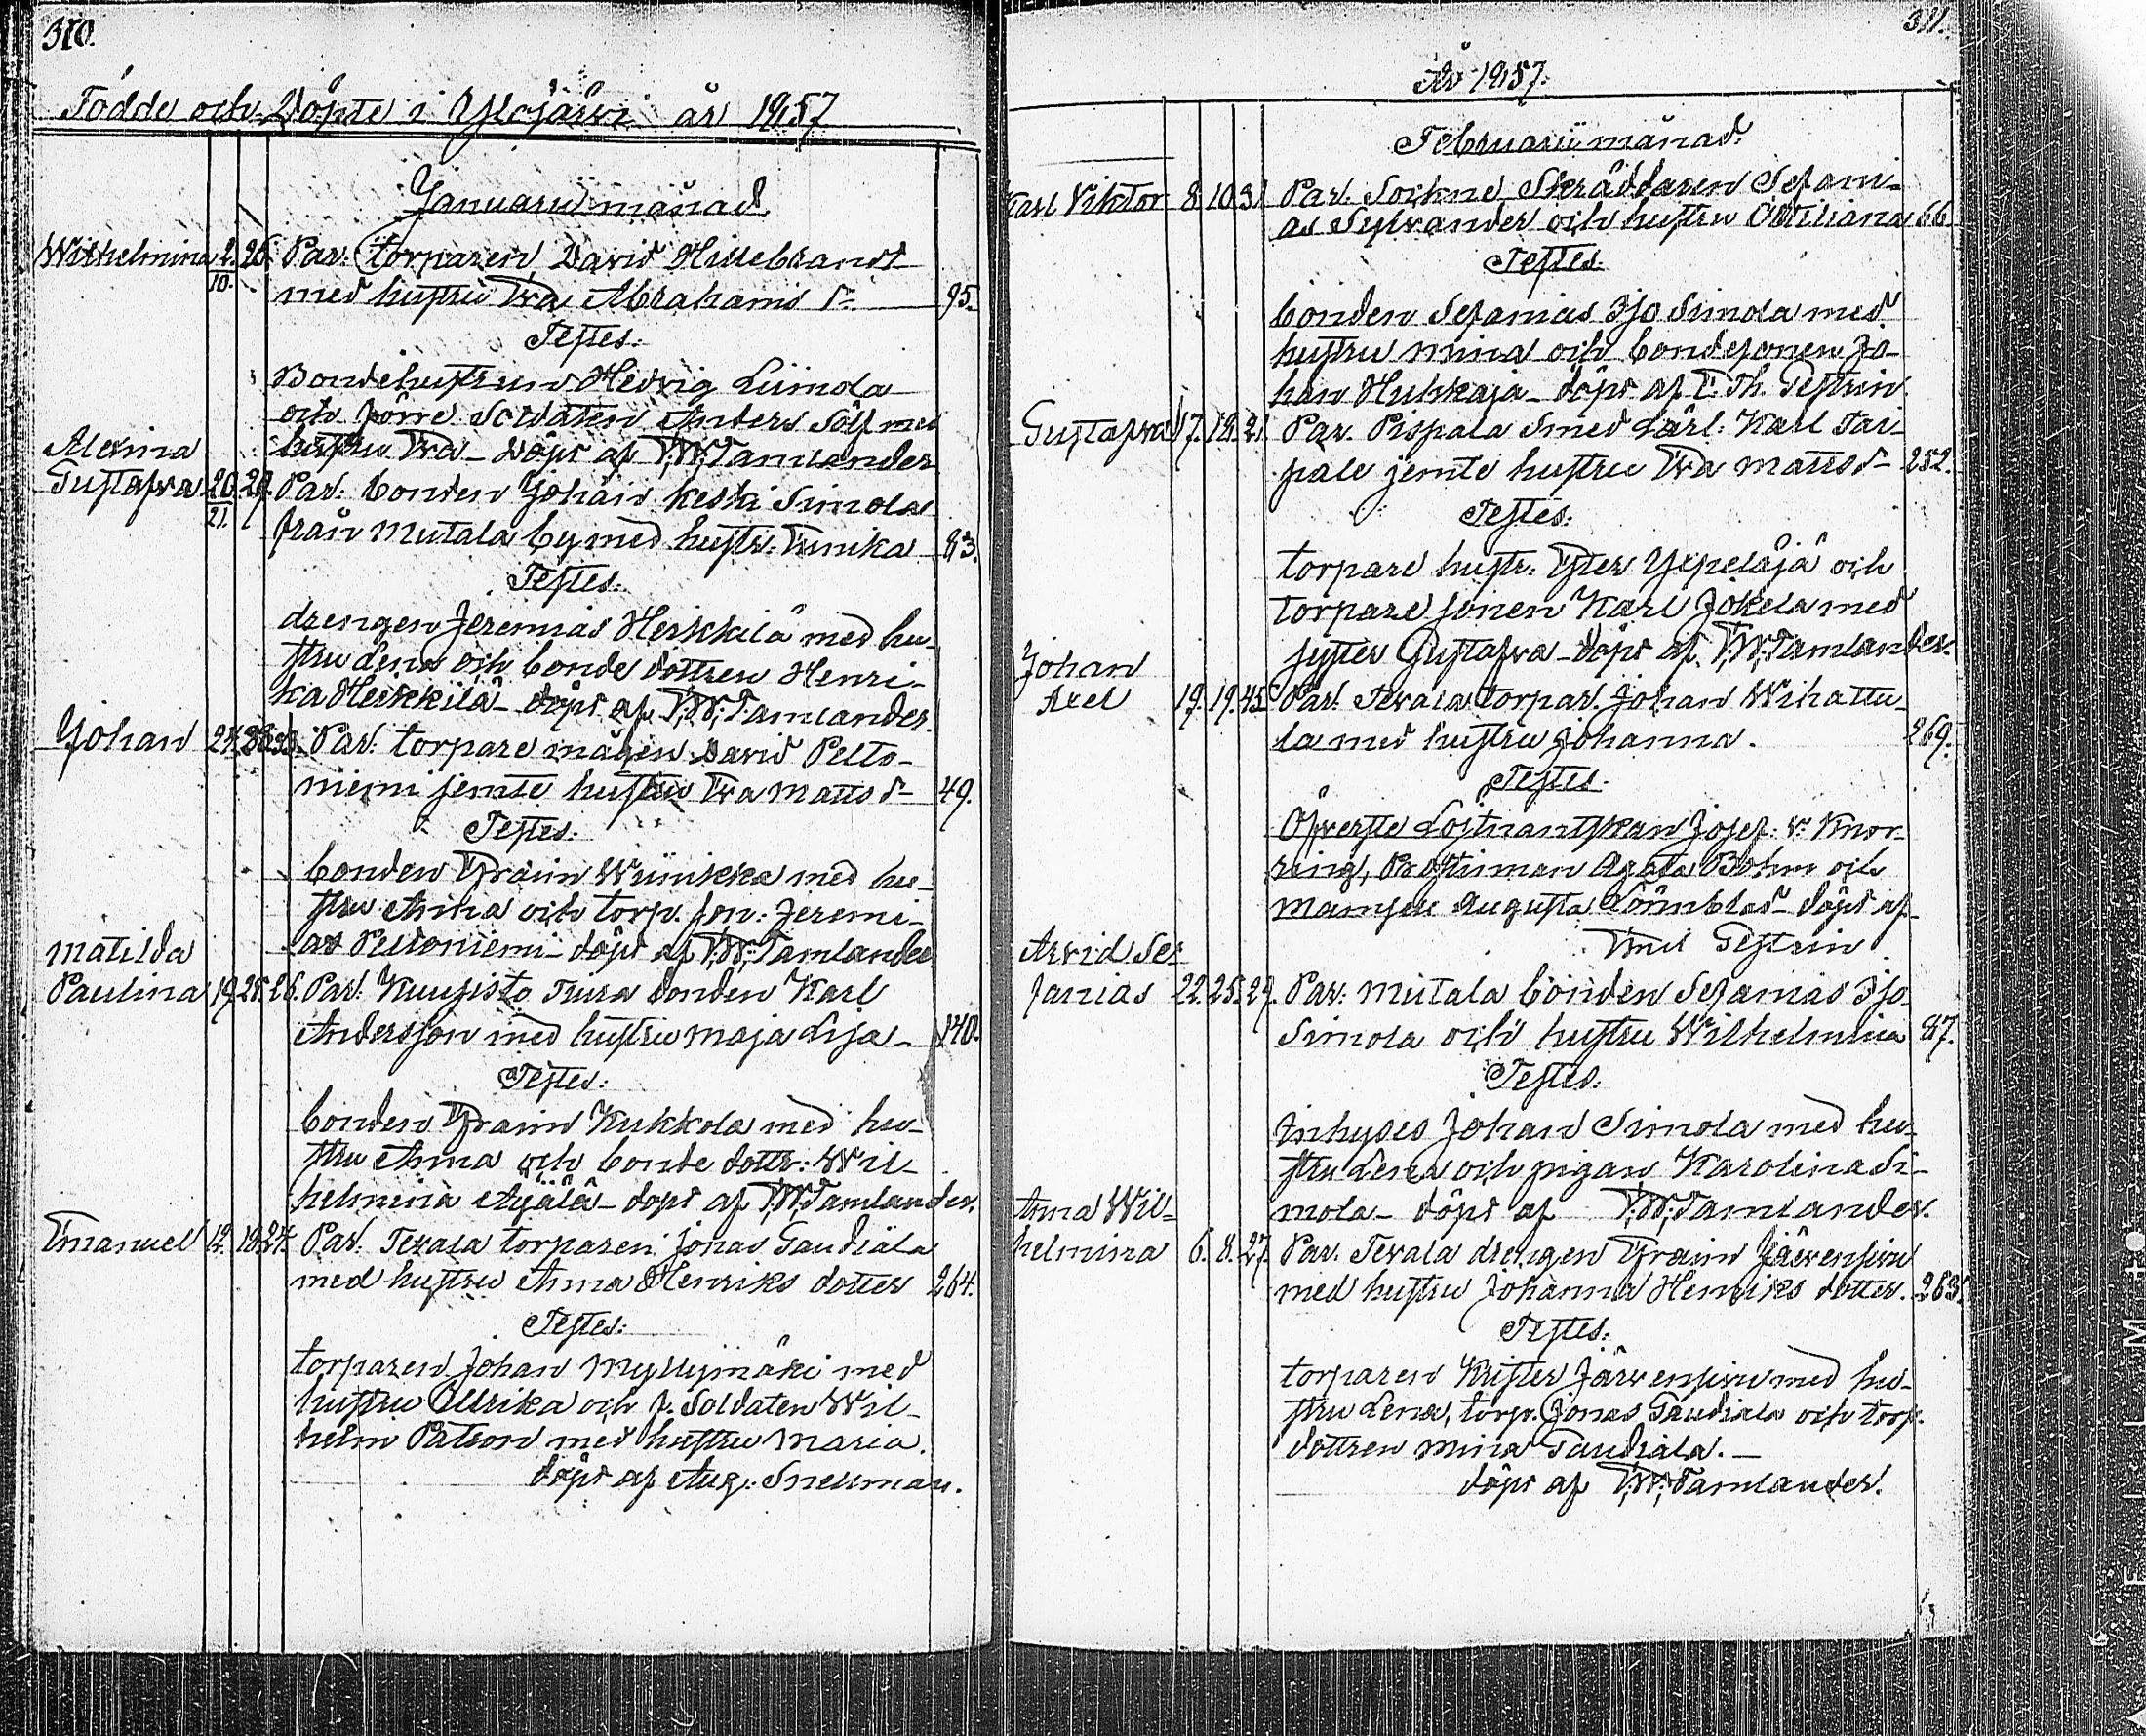 310.
Födde och Döpte i Ylöjärvi år 1957
Januarii månad
Wilhelmina 2. 26. Par: torparen David Hillebrandt
10. med hustru Eva Abrahams d- 95.
Testes:
Bondehustrun Hedvig Liimola
och förre Soldaten Anders Sölf med
Alexina hustru Eva - Döpt af F;W;Tamlander
Gustafva 20. 29. Par: bonden Johan Keski Simola
21. från Mutala by med hustr: Ennika 83.
Testes:
drengen Jeremias Heikkilä med hu-
stru Lena och bonde dottren Henri-
ka Heikkilä - döpt af F;W;Tamlander.
Johan 27. 28. 33. Par: torpare mågen David Pelto-
niemi jemte hustru Eva Matts d- 49.
Testes:
bonden Efraim Wiinikka med hu-
stru Anna och torp. son: Jeremi-
Matilda as Peltoniemi - döpt af F;W;Tamlander
Paulina 19. 25. 26. Par: Kuusisto Tura bonden Karl
Andersson med hustru Maja Lisa - 140.
Testes:
bonden Efraim Kukkola med hu-
stru Anna och bonde dottr: Wil-
helmina Äyälä - döpt af F;W;Tamlander.
Emanuel 12. 18. 27. Par: Tevala torparen Jonas Gaudiala
med hustru Anna Henriks dotter 264.
Testes:
torparen Johan Myllymäki med
hustru Ullrika och f. Soldaten Wil-
helm Patron med hustru Maria.
döpt af Aug: Snellman.
311.
År 1957.
Februarii månad.
Karl Viktor 8. 10. 31. Par. Sockne Skräddaren Sefani-
as Sylvander och hustru Ottiliana 66.
Testes.
bonden Sefanias Iso Simola med
hustru Mina och bondesonen Jo-
han Huhkaja - döpt af E. Th. Gestrin.
Gustafva 17. 19. 21. Par. Pispala Smed Lärl: Karl Tai-
pale jemte hustru Eva Matts d- 252.
Testes:
torpare hustr: Ester Ylipeläjä och
torpare sonen Karl Jokela med
Johan syster Gustafva - döpt af F;W;Tamlander.
Axel 17. 19. 45. Par. Tevala torpar. Johan Wihattu-
la med hustru Johanna. 269.
Testes:
Öfverste Löjtnantskan Josef: v: Knor-
ring, Prostinnan Agata Bohm och
Mamsell Augusta Lönnblad - döpt af
Arvid Se- Emil Gestrin.
fanias 22. 25. 29. Par: Mutala bonden Sefanias Iso
Simola och hustru Wilhelmina 87.
Testes.
Inhyses Johan Simola med hu-
stru Lena och pigan Karolina Si-
Anna Wil= mola - döpt af F;W;Tamlander.
helmina 6. 8. 27. Par. Tevala drengen Efraim Järvensivu
med hustru Johanna Henriks dotter. 263.
Testes:
torparen Krister Järvensivu med hu-
stru Lena, torp. Jonas Gaudiala och torp.
dottren Mina Gaudiala. -
döpt af F;W;Tamlander.